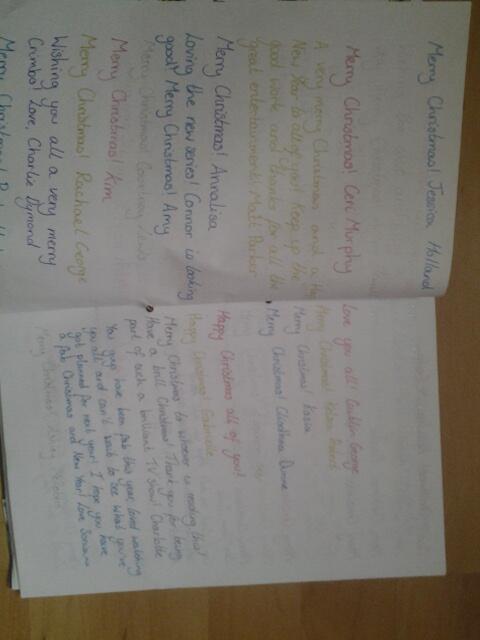 Merry Christmas! Jessica Holland
Merry Christmas! Ceri Murphy
A very merry Christmas and a Happy
New Year to all of you! Keep up the
good work and thanks for all the
great entertainment! Matt Parker
Merry Christmas! Annalisa
Loving the new series! Connor is looking
good! Merry Christmas! Amy
Merry Christmas! Courtney Lewis
Merry Christmas! Kim
Merry Christmas! Rachael George
Wishing you all a very merry
Crimbo! Love, Charlie Dymond
Merry Christmas!
Love you all! Caitlin George
Merry Christmas!
Merry Christmas! Kasia
Merry Christmas! Cliodhna Dunne
Happy Christmas all of you!
Happy Christmas! Gabrielle
Merry Christmas to whoever is reading this!
Have a brill Christmas! Thank you for being
part of such a brilliant TV show! Charlotte
You guys have been fab this year, loved watching
you all! and can't wait to see what you've
got planned for next year! I hope you have
a fab Christmas and New Year! Love
Merry Christmas!